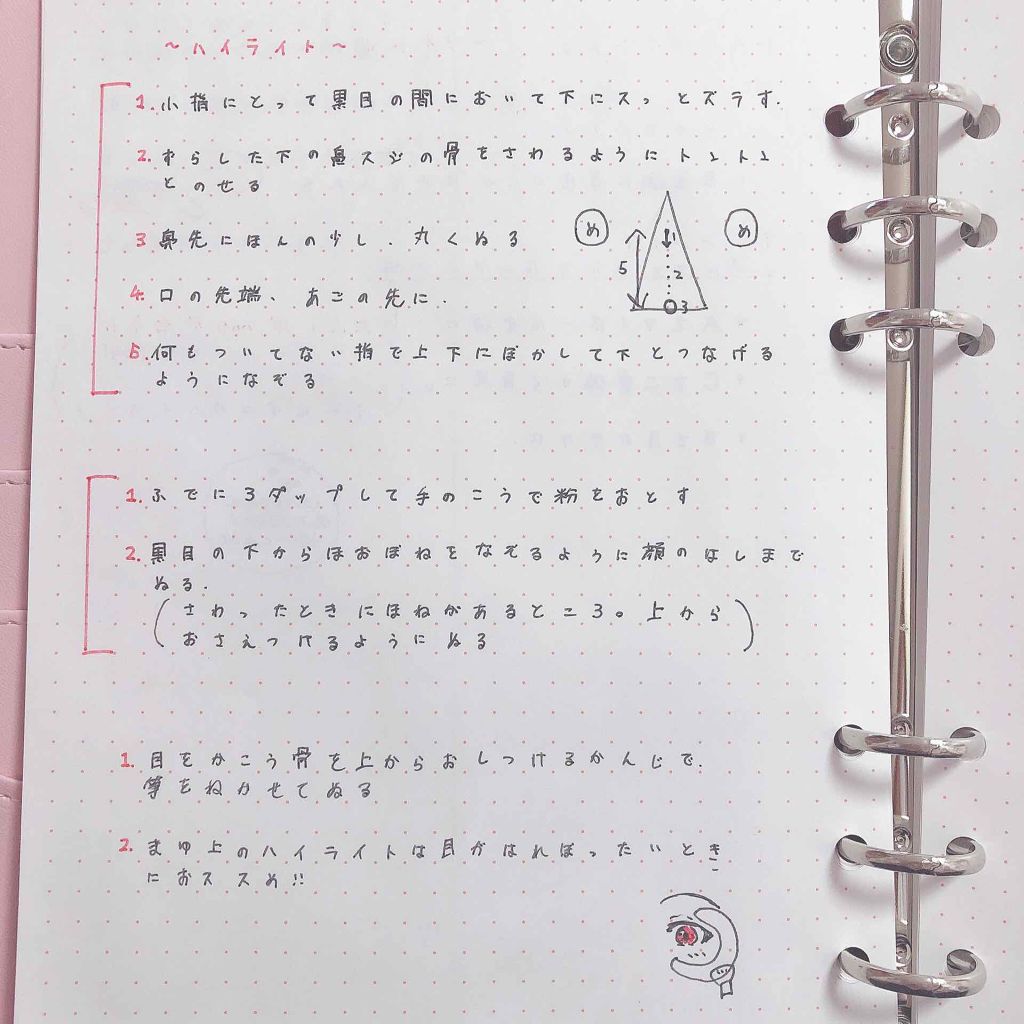 ~ハイライト~
1.小指にとって黒目の間において下にスッとズラす.
2.ずらした下の鼻スジの骨をさわるようにトントン
とのせる
め
め
1
5
2
3
3 鼻先にほんの少し、丸くぬる
4.口の先端、あごの先に.
5.何もついてない指で上下にぼかして下とつなげる
ようになぞる
1.ふでに3ダップして手のこうで粉をおとす
2.黒目の下からほおぼねをなぞるように顔のはしまで
ぬる.
(さわったときにほねがあるところ。上から
おさえつけるようにぬる)
1.目をかこう骨を上からおしつけるかんじで.
筆をねかせてぬる
2.まゆ上のハイライトは目がはればったいとき
におススめ!!